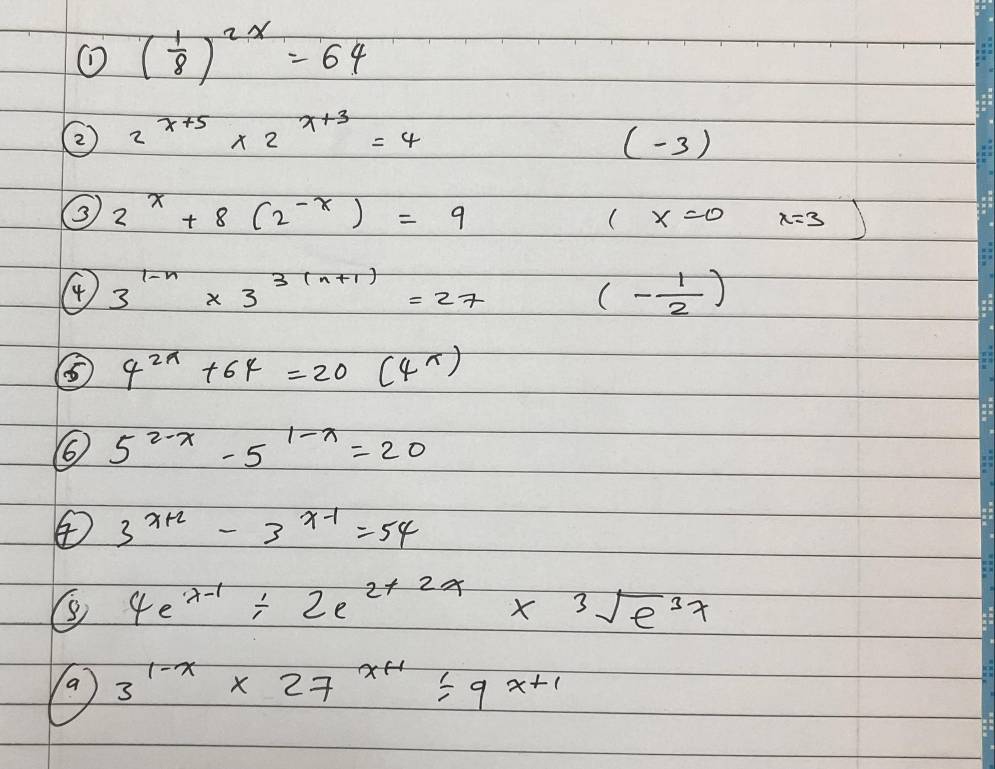 ① (1/8)^2x = 64
② 2^x+5 × 2^x+3 = 4 (-3)
③ 2^x + 8 (2^-x) = 9 ( x=0 x=3 )
④ 3^1-n × 3^3(n+1) = 27 (-1/2)
⑤ 4^2x + 64 = 20 (4^x)
⑥ 5^2-x - 5^1-x = 20
⑦ 3^x+2 - 3^x-1 = 54
⑧ 4e^x-1 ÷ 2e^2+2x × ³√e^3x
⑨ 3^1-x × 27^x+1 ÷ 9^x+1